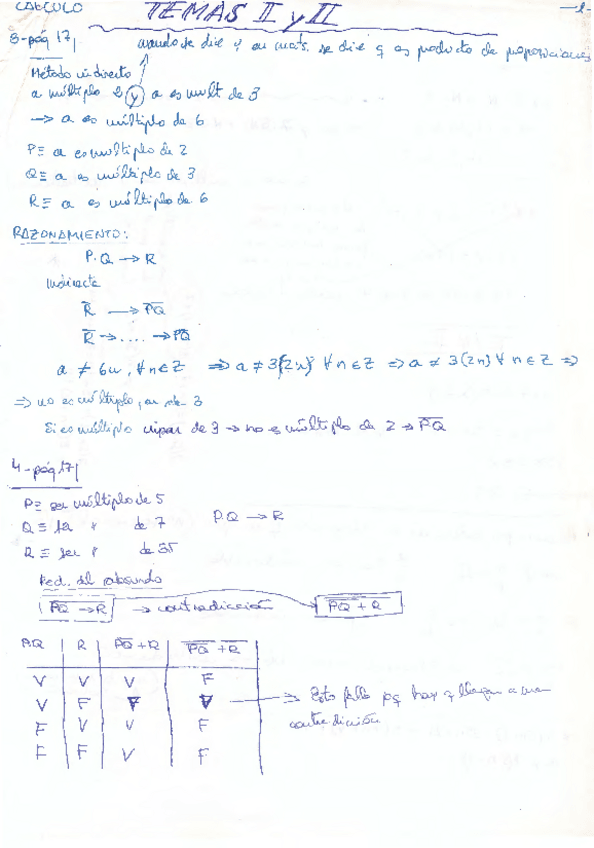 CALCULO TEMAS II y II -1-
3-pág 17| cuando se dice y en mat. se dice q es producto de proposiciones
Método indirecto
a múltiplo 2 y a es mult de 3
→ a es múltiplo de 6
P≡ a es multiplo de 2
Q≡ a es múltiplo de 3
R≡ a es múltiplo de 6
RAZONAMIENTO:
P.Q → R
Indirecta
R̅ → P̅Q̅
R̅ → .... → P̅Q̅
a ≠ 6n, ∀n∈Z ⇒ a ≠ 3(2n) ∀n∈Z ⇒ a ≠ 3(2n) ∀n∈Z ⇒
⇒ no es múltiplo, de 3
Si es múltiplo impar de 3 → no es múltiplo de 2 → P̅Q̅
4-pág 17|
P≡ ser múltiplo de 5
Q≡ ser " de 7 P.Q → R
R≡ ser " de 35
Red. al absurdo
P̅Q̅ → R̅ → contradicción P̅Q̅ + R
P.Q R P̅Q̅ + R P̅Q̅ + R̅
V V V F
V F F V ⇒ Esto falla pq hay q llegar a una
contradicción
F V V F
F F V F